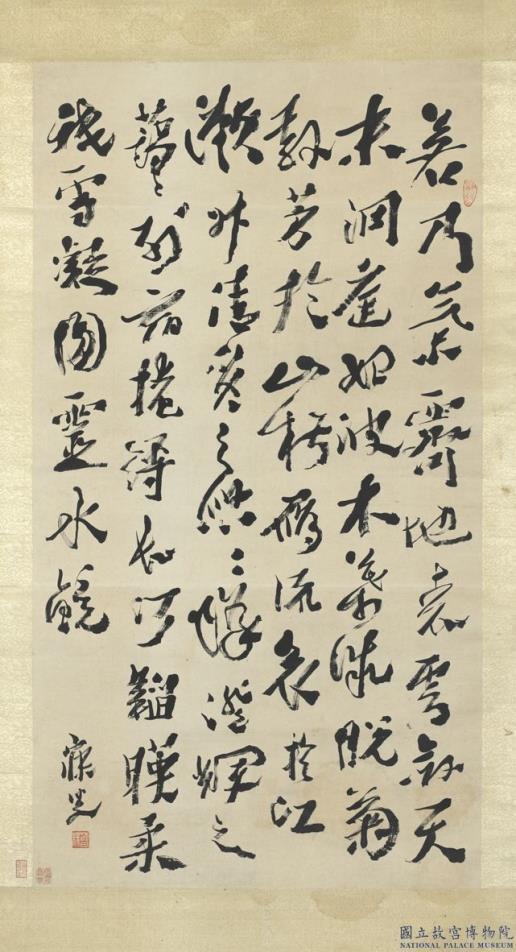 若乃氣霽地表雲斂天
末洞庭始波木葉微脫菊
散芳於山椒鴈流哀於江
瀨升清質之悠〻降澄輝之
藹〻列宿掩縟長河韜暎柔
祇雪凝圓靈水鏡
寐叟
國立故宮博物院
NATIONAL PALACE MUSEUM